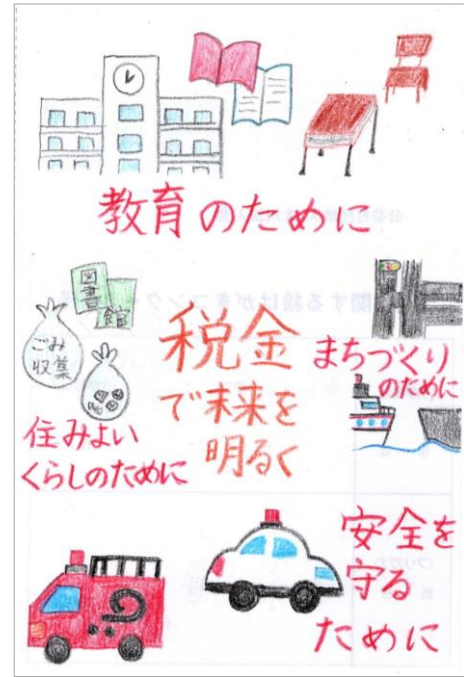 教育のために
図書
館
ごみ
収集
税金
で未来を
明るく
まちづくり
のために
住みよい
くらしのために
安全を
守る
ために